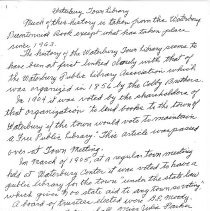 Waterbury Town Library
Much of this history is taken from the Waterbury
Centennial Book except what has taken place
since 1903.
The history of the Waterbury Town Library seems to
have been at first linked closely with that of
the Waterbury Public Library Association which
was organized in 1856 by the Colby Brothers.
In 1904 it was voted by the shareholders of
that organization to send books to the town of
Waterbury if the town would vote to maintain
a Free Public Library. This article was passed
over at Town Meeting.
In March of 1905, at a regular town meeting
held at Waterbury Center, it was voted to have a
public library for the town under the state law
which gives to no state aid to any town voting
A board of trustees elected were B.R. Moody,
Miss